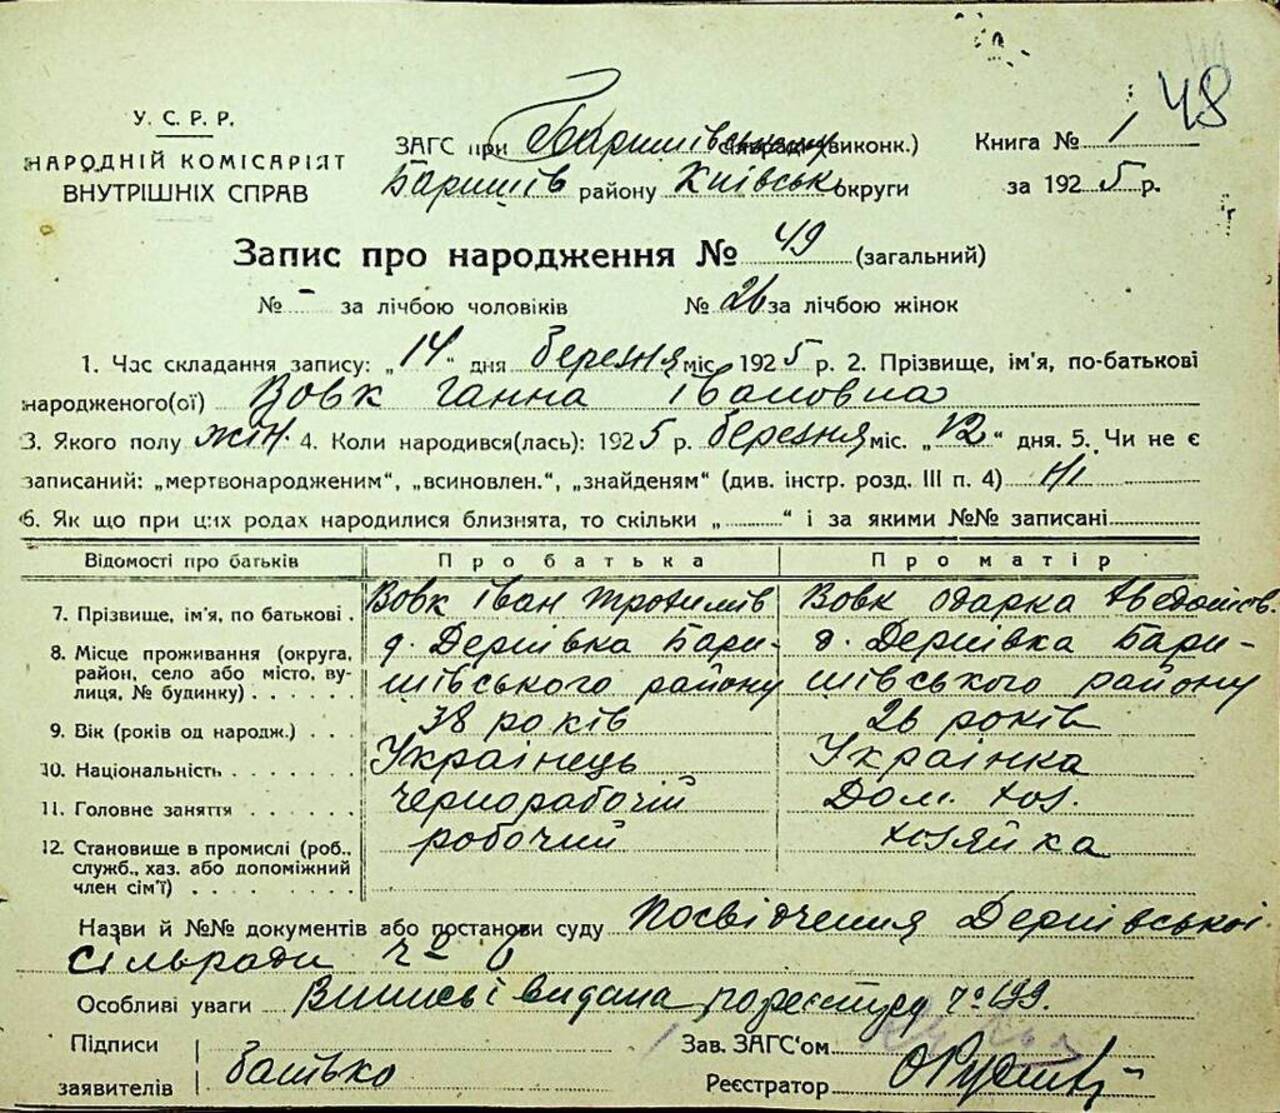 48
У. С. Р. Р.
НАРОДНІЙ КОМІСАРІЯТ
ВНУТРІШНІХ СПРАВ
ЗАГС при Баришівському (виконк.)
Баришів району Київськ округи
Книга № 1
за 1925 р.
Запис про народження № 49 (загальний)
№ - за лічбою чоловіків № 26 за лічбою жінок
1. Час складання запису: „14“ дня березня міс. 1925 р. 2. Прізвище, ім'я, по-батькові
народженого(ої) Вовк Ганна Івановна
3. Якого полу жін. 4. Коли народився(лась): 1925 р. березня міс. „12“ дня. 5. Чи не є
записаний: „мертвонародженим“, „всиновлен.“, „знайденям“ (див. інстр. розд. III п. 4) Ні
6. Як що при цих родах народилися близнята, то скільки „ “ і за якими №№ записані
Відомості про батьків Про батька Про матір
7. Прізвище, ім'я, по батькові . Вовк Іван Трохимів Вовк Одарка
8. Місце проживання (округа, район, село або місто, вулиця, № будинку) . . . . . . д. Дернівка Бари- д. Дернівка Бари-
шівського району шівського району
9. Вік (років од народж.) . . . 38 років 26 років
10. Національність . . . . . . . Українець Українка
11. Головне заняття . . . . . . чернорабочій Дом. хоз.
12. Становище в промислі (роб., служб., хаз. або допоміжний член сім'ї) . . . . . . . робочий хозяйка
Назви й №№ документів або постанови суду Посвідчення Дернівської
сільради ч 6
Особливі уваги Виписьі видана по реєстру № 199.
Підписи
заявителів батько
Зав. ЗАГС'ом
Реєстратор